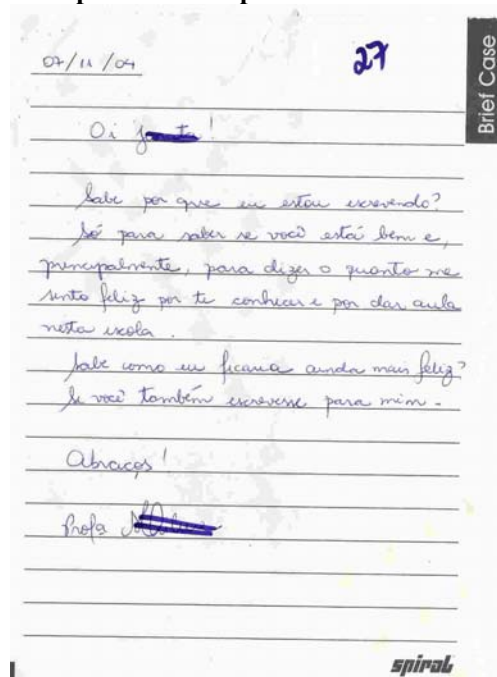 07/11/04
27
Brief Case
Oi !
Sabe por que eu estou escrevendo?
Só para saber se você está bem e,
principalmente, para dizer o quanto me
sinto feliz por te conhecer e por dar aula
nesta escola.
Sabe como eu ficaria ainda mais feliz?
Se você também escrevesse para mim.
Abraços!
Profa
spiral